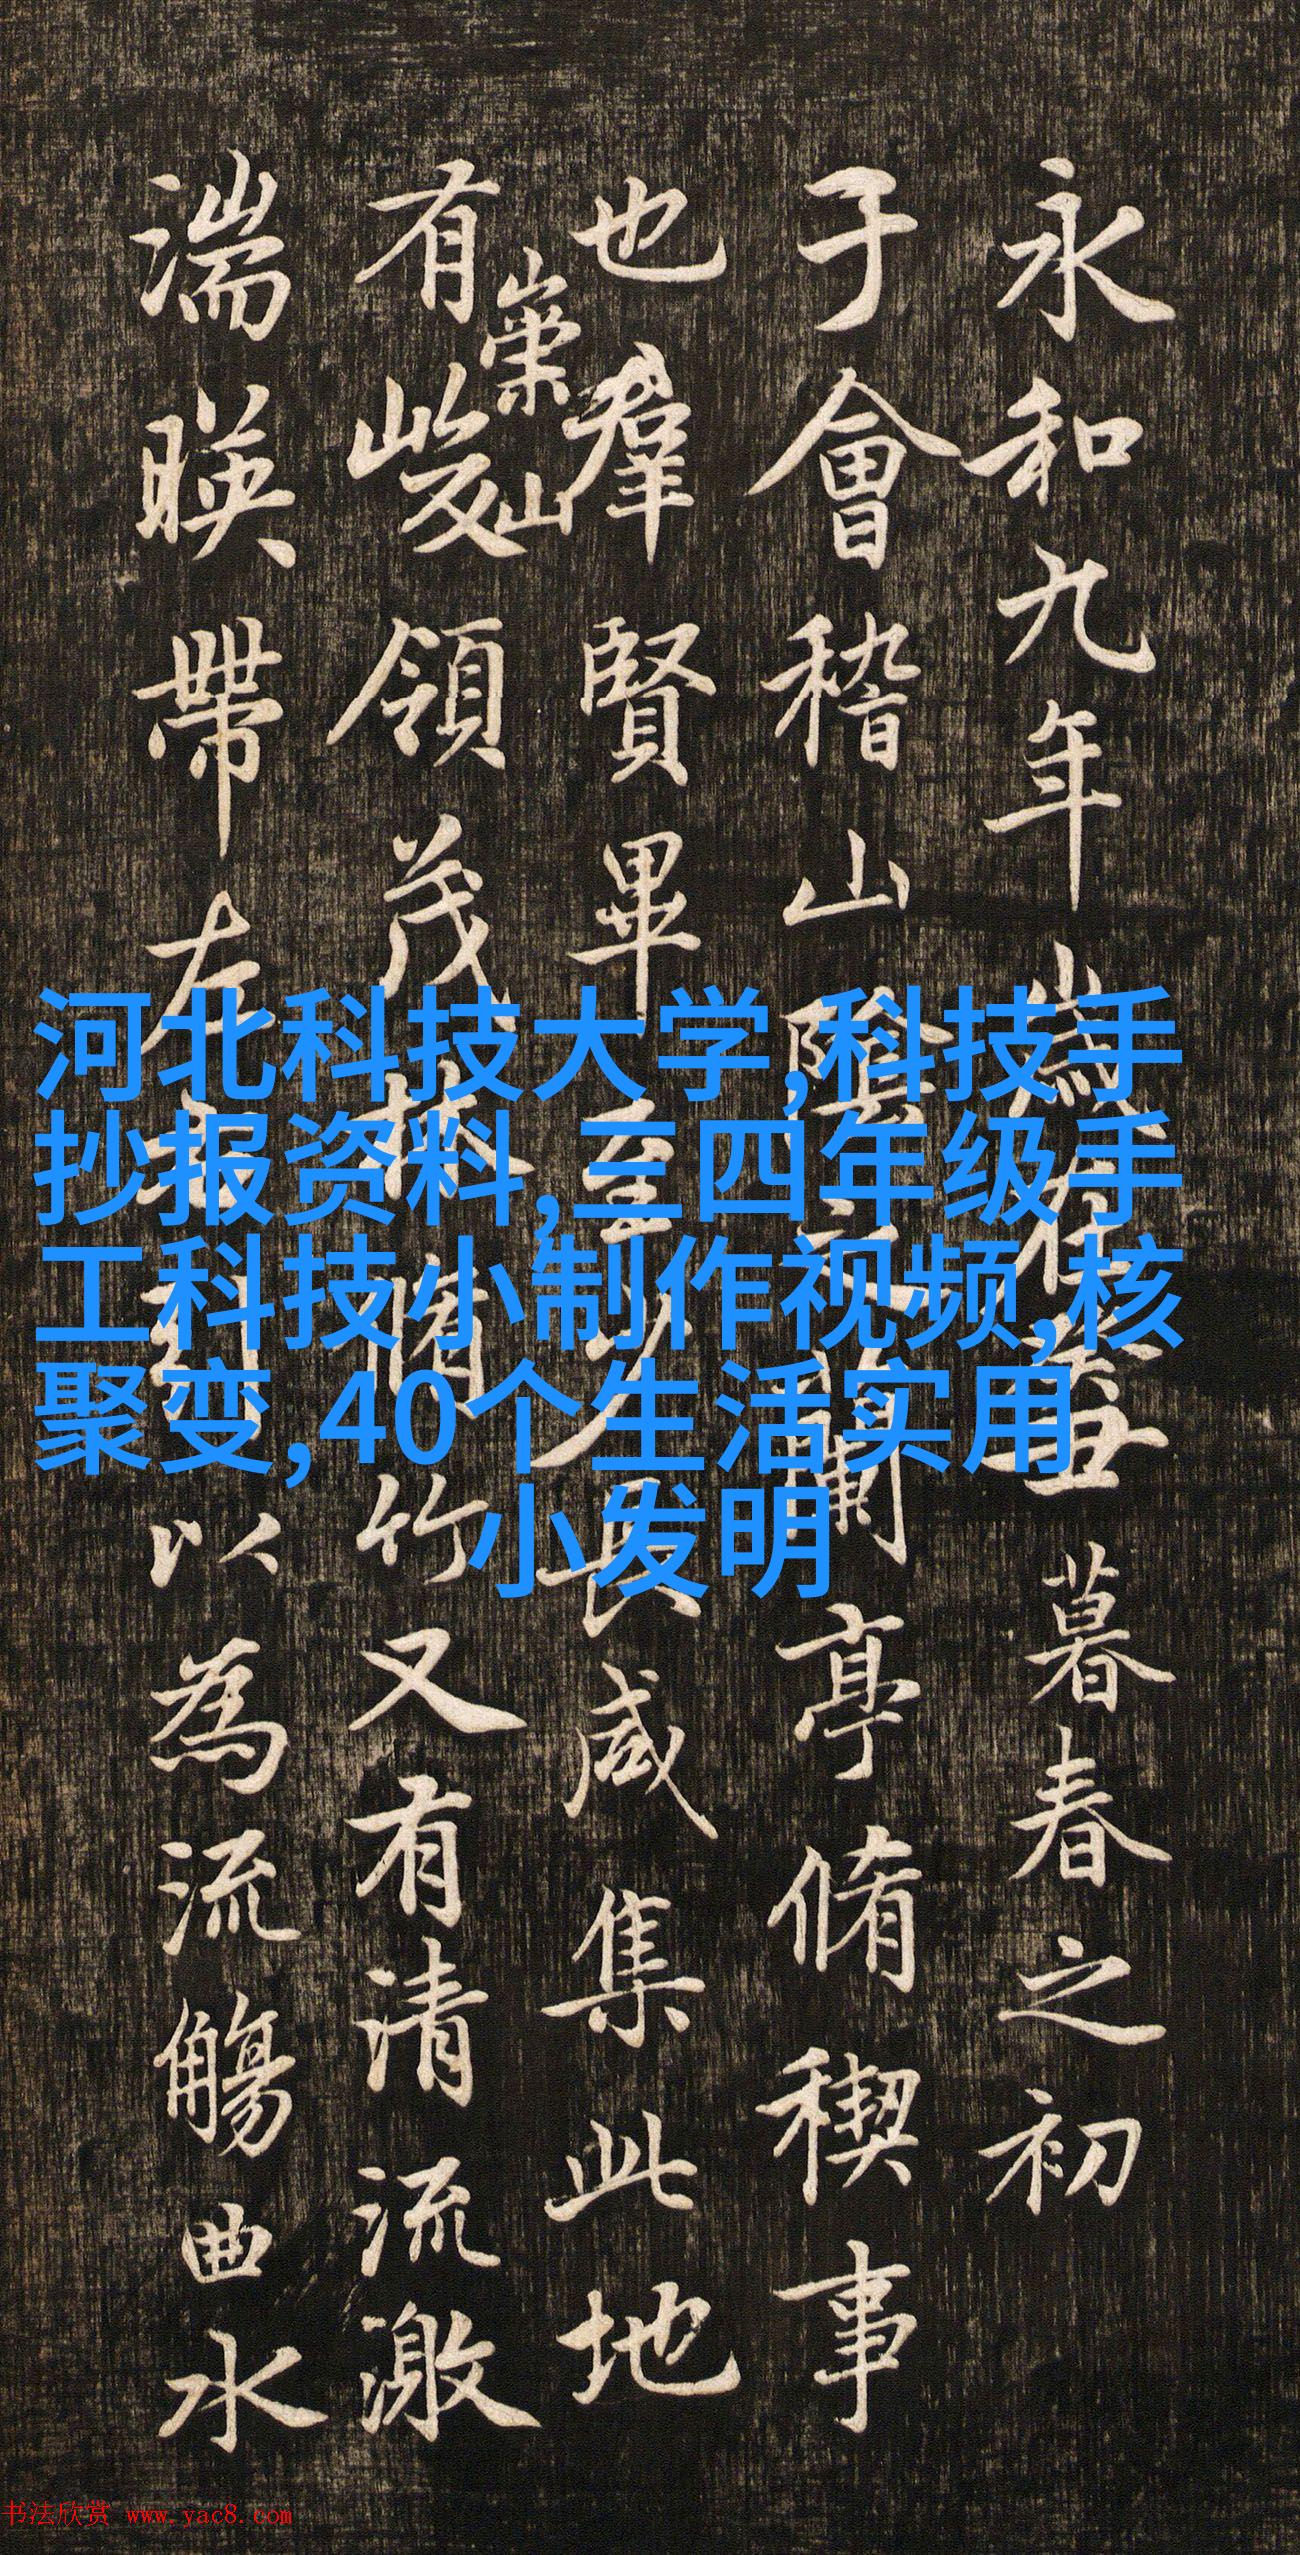 永和九年歲在癸丑暮春之初
于會稽山陰之蘭亭脩稧事
也羣賢畢至少長咸集此地
有崇山峻領茂林脩竹又有清流激
湍暎帶左右引以為流觴曲水
河北科技大学,科技手
抄报资料,三四年级手
工科技小制作视频,核
聚变,40个生活实用
小发明
书法欣赏 www.yac8.com